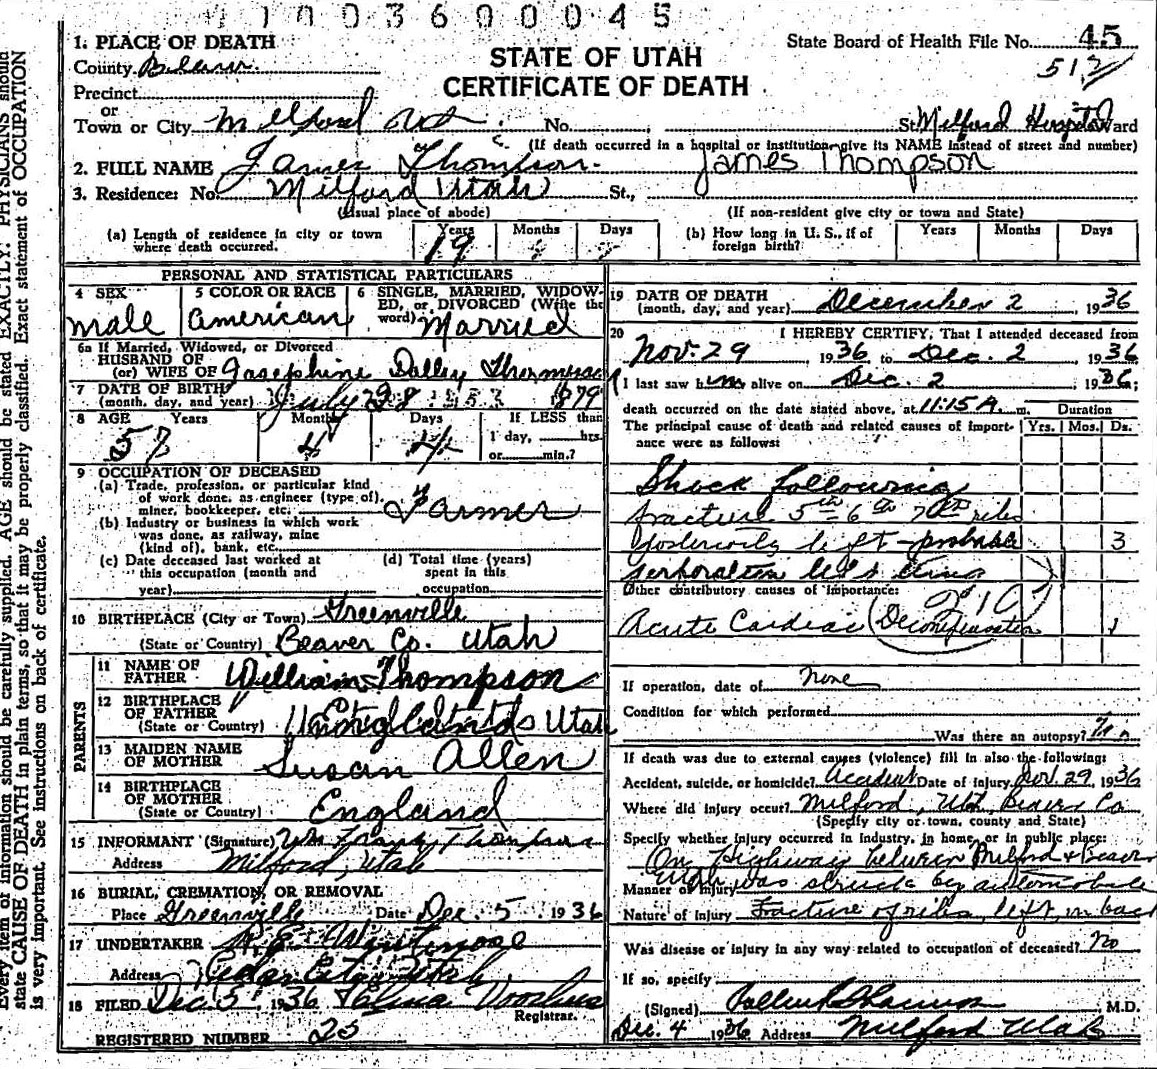 1003600045
1. PLACE OF DEATH
County Beaver
Precinct
or
Town or City Milford Utah No. St. Milford Hospital Ward
(If death occurred in a hospital or institution give its NAME instead of street and number)
STATE OF UTAH
CERTIFICATE OF DEATH
State Board of Health File No. 45
512
2. FULL NAME James Thompson James Thompson
3. Residence: No. Milford Utah St.,
(Usual place of abode) (If non-resident give city or town and State)
(a) Length of residence in city or town where death occurred. Years 19 Months Days
(b) How long in U. S., if of foreign birth? Years Months Days
PERSONAL AND STATISTICAL PARTICULARS
4 SEX male
5 COLOR OR RACE American
6 SINGLE, MARRIED, WIDOWED, or DIVORCED (Write the word) Married
6a If Married, Widowed, or Divorced
HUSBAND OF
(or) WIFE OF Josephine Dalley Thompson
7 DATE OF BIRTH
(month, day, and year) July 28 1879
8 AGE Years 57 Months 4 Days 4 If LESS than
1 day, hrs.
or min.?
9 OCCUPATION OF DECEASED
(a) Trade, profession, or particular kind
of work done, as engineer (type of),
miner, bookkeeper, etc. Farmer
(b) Industry or business in which work
was done, as railway, mine
(kind of), bank, etc.
(c) Date deceased last worked at
this occupation (month and
year)
(d) Total time (years)
spent in this
occupation
10 BIRTHPLACE (City or Town) Greenville
(State or Country) Beaver Co. Utah
PARENTS
11 NAME OF
FATHER William Thompson
12 BIRTHPLACE
OF FATHER
(State or Country) Utah
13 MAIDEN NAME
OF MOTHER Susan Allen
14 BIRTHPLACE
OF MOTHER
(State or Country) England
15 INFORMANT (Signature) Wm Frank Thompson
Address Milford, Utah
16 BURIAL, CREMATION, OR REMOVAL
Place Greenville Date Dec. 5 1936
17 UNDERTAKER
Address Cedar City, Utah
18 FILED Dec 5 1936
Registrar.
REGISTERED NUMBER 25
19 DATE OF DEATH
(month, day, and year) December 2 1936
20 I HEREBY CERTIFY, That I attended deceased from
Nov. 29 1936 to Dec. 2 1936
I last saw him alive on Dec. 2 1936;
death occurred on the date stated above, at 11:15 A. m. Duration
The principal cause of death and related causes of importance were as follows: Yrs. Mos. Ds.
Shock following
fracture 5th 6th 7th ribs
posteriorly left - probable 3
perforation left
Other contributory causes of importance:
Acute Cardiac Decompensation 1
If operation, date of none
Condition for which performed
Was there an autopsy? no
If death was due to external causes (violence) fill in also the following:
Accident, suicide, or homicide? Accident Date of injury Nov. 29, 1936
Where did injury occur? Milford, Utah, Beaver Co
(Specify city or town, county and State)
Specify whether injury occurred in industry, in home, or in public place:
On highway between Milford & Beaver
Manner of injury Utah was struck by automobile
Nature of injury Fracture of ribs, left, in back
Was disease or injury in any way related to occupation of deceased? no
If so, specify
(Signed) M.D.
Dec. 4 1936 Address Milford Utah
Every item of information should be carefully supplied. AGE should be stated EXACTLY. PHYSICIANS should
state CAUSE OF DEATH in plain terms, so that it may be properly classified. Exact statement of OCCUPATION
is very important. See instructions on back of certificate.